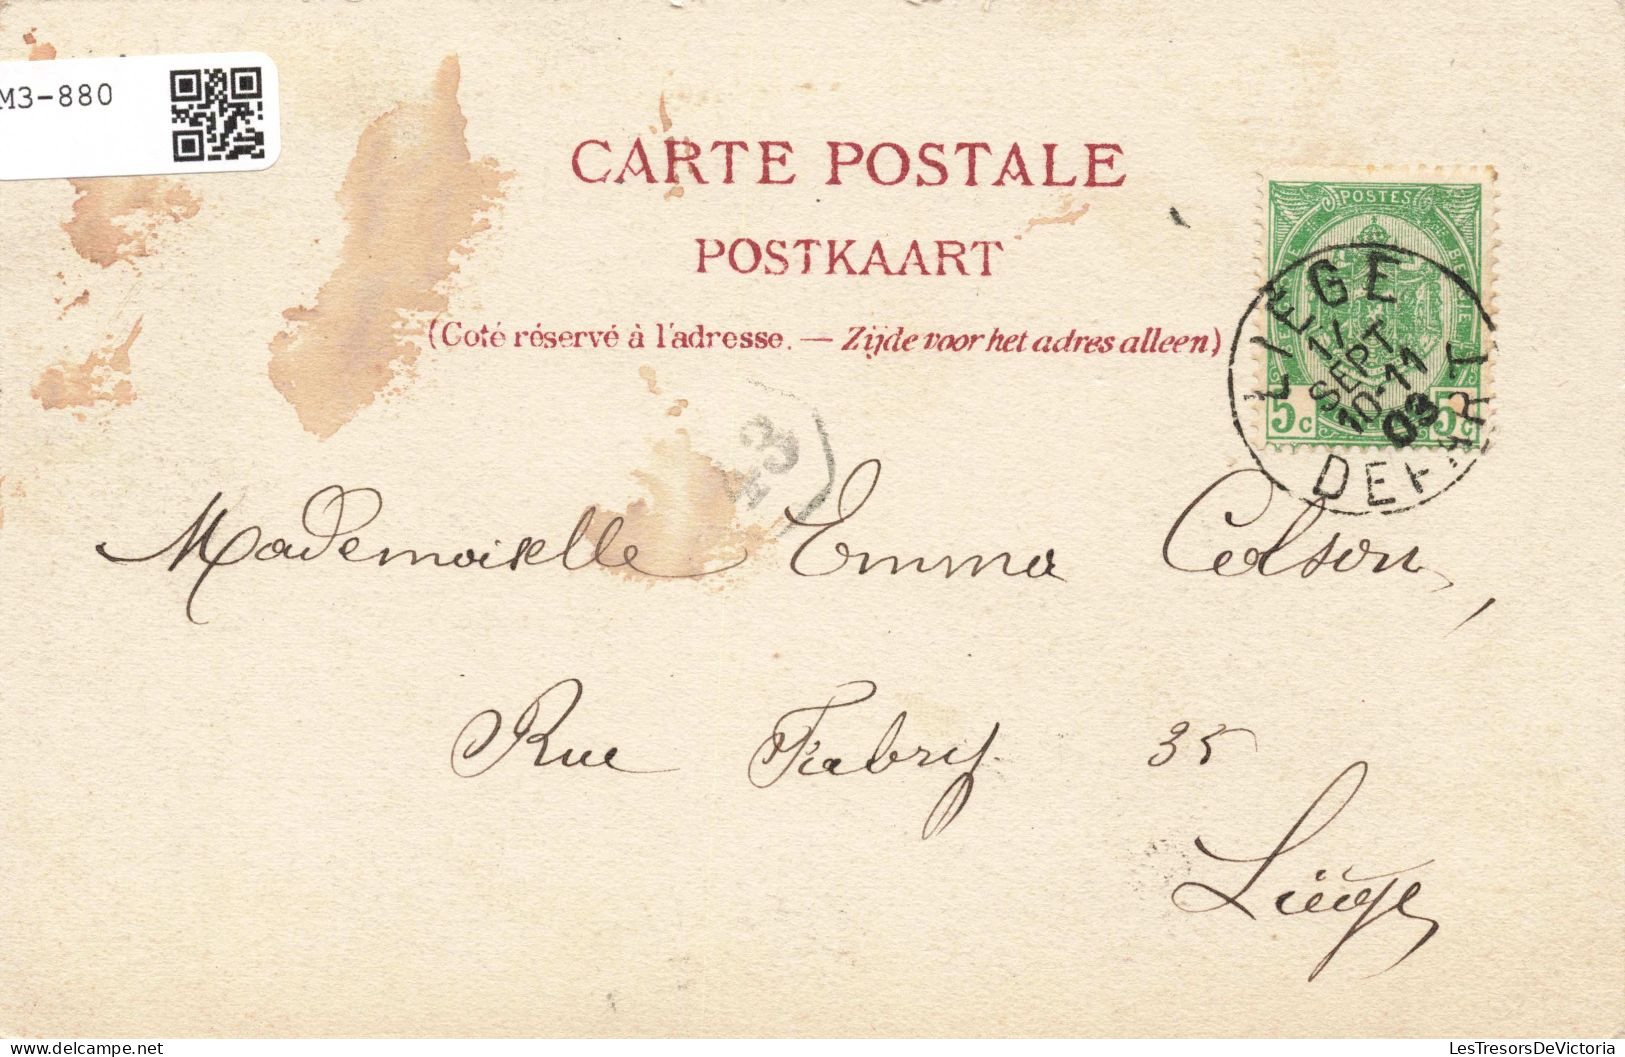 M3-880
CARTE POSTALE
POSTKAART
(Coté réservé à l'adresse. — Zijde voor het adres alleen)
POSTES
5c 5c
LIEGE
17
SEPT
10-11
03
DEPART
43
Mademoiselle Emma Colson,
Rue Fabry. 35
Liège
LesTresorsDeVictoria